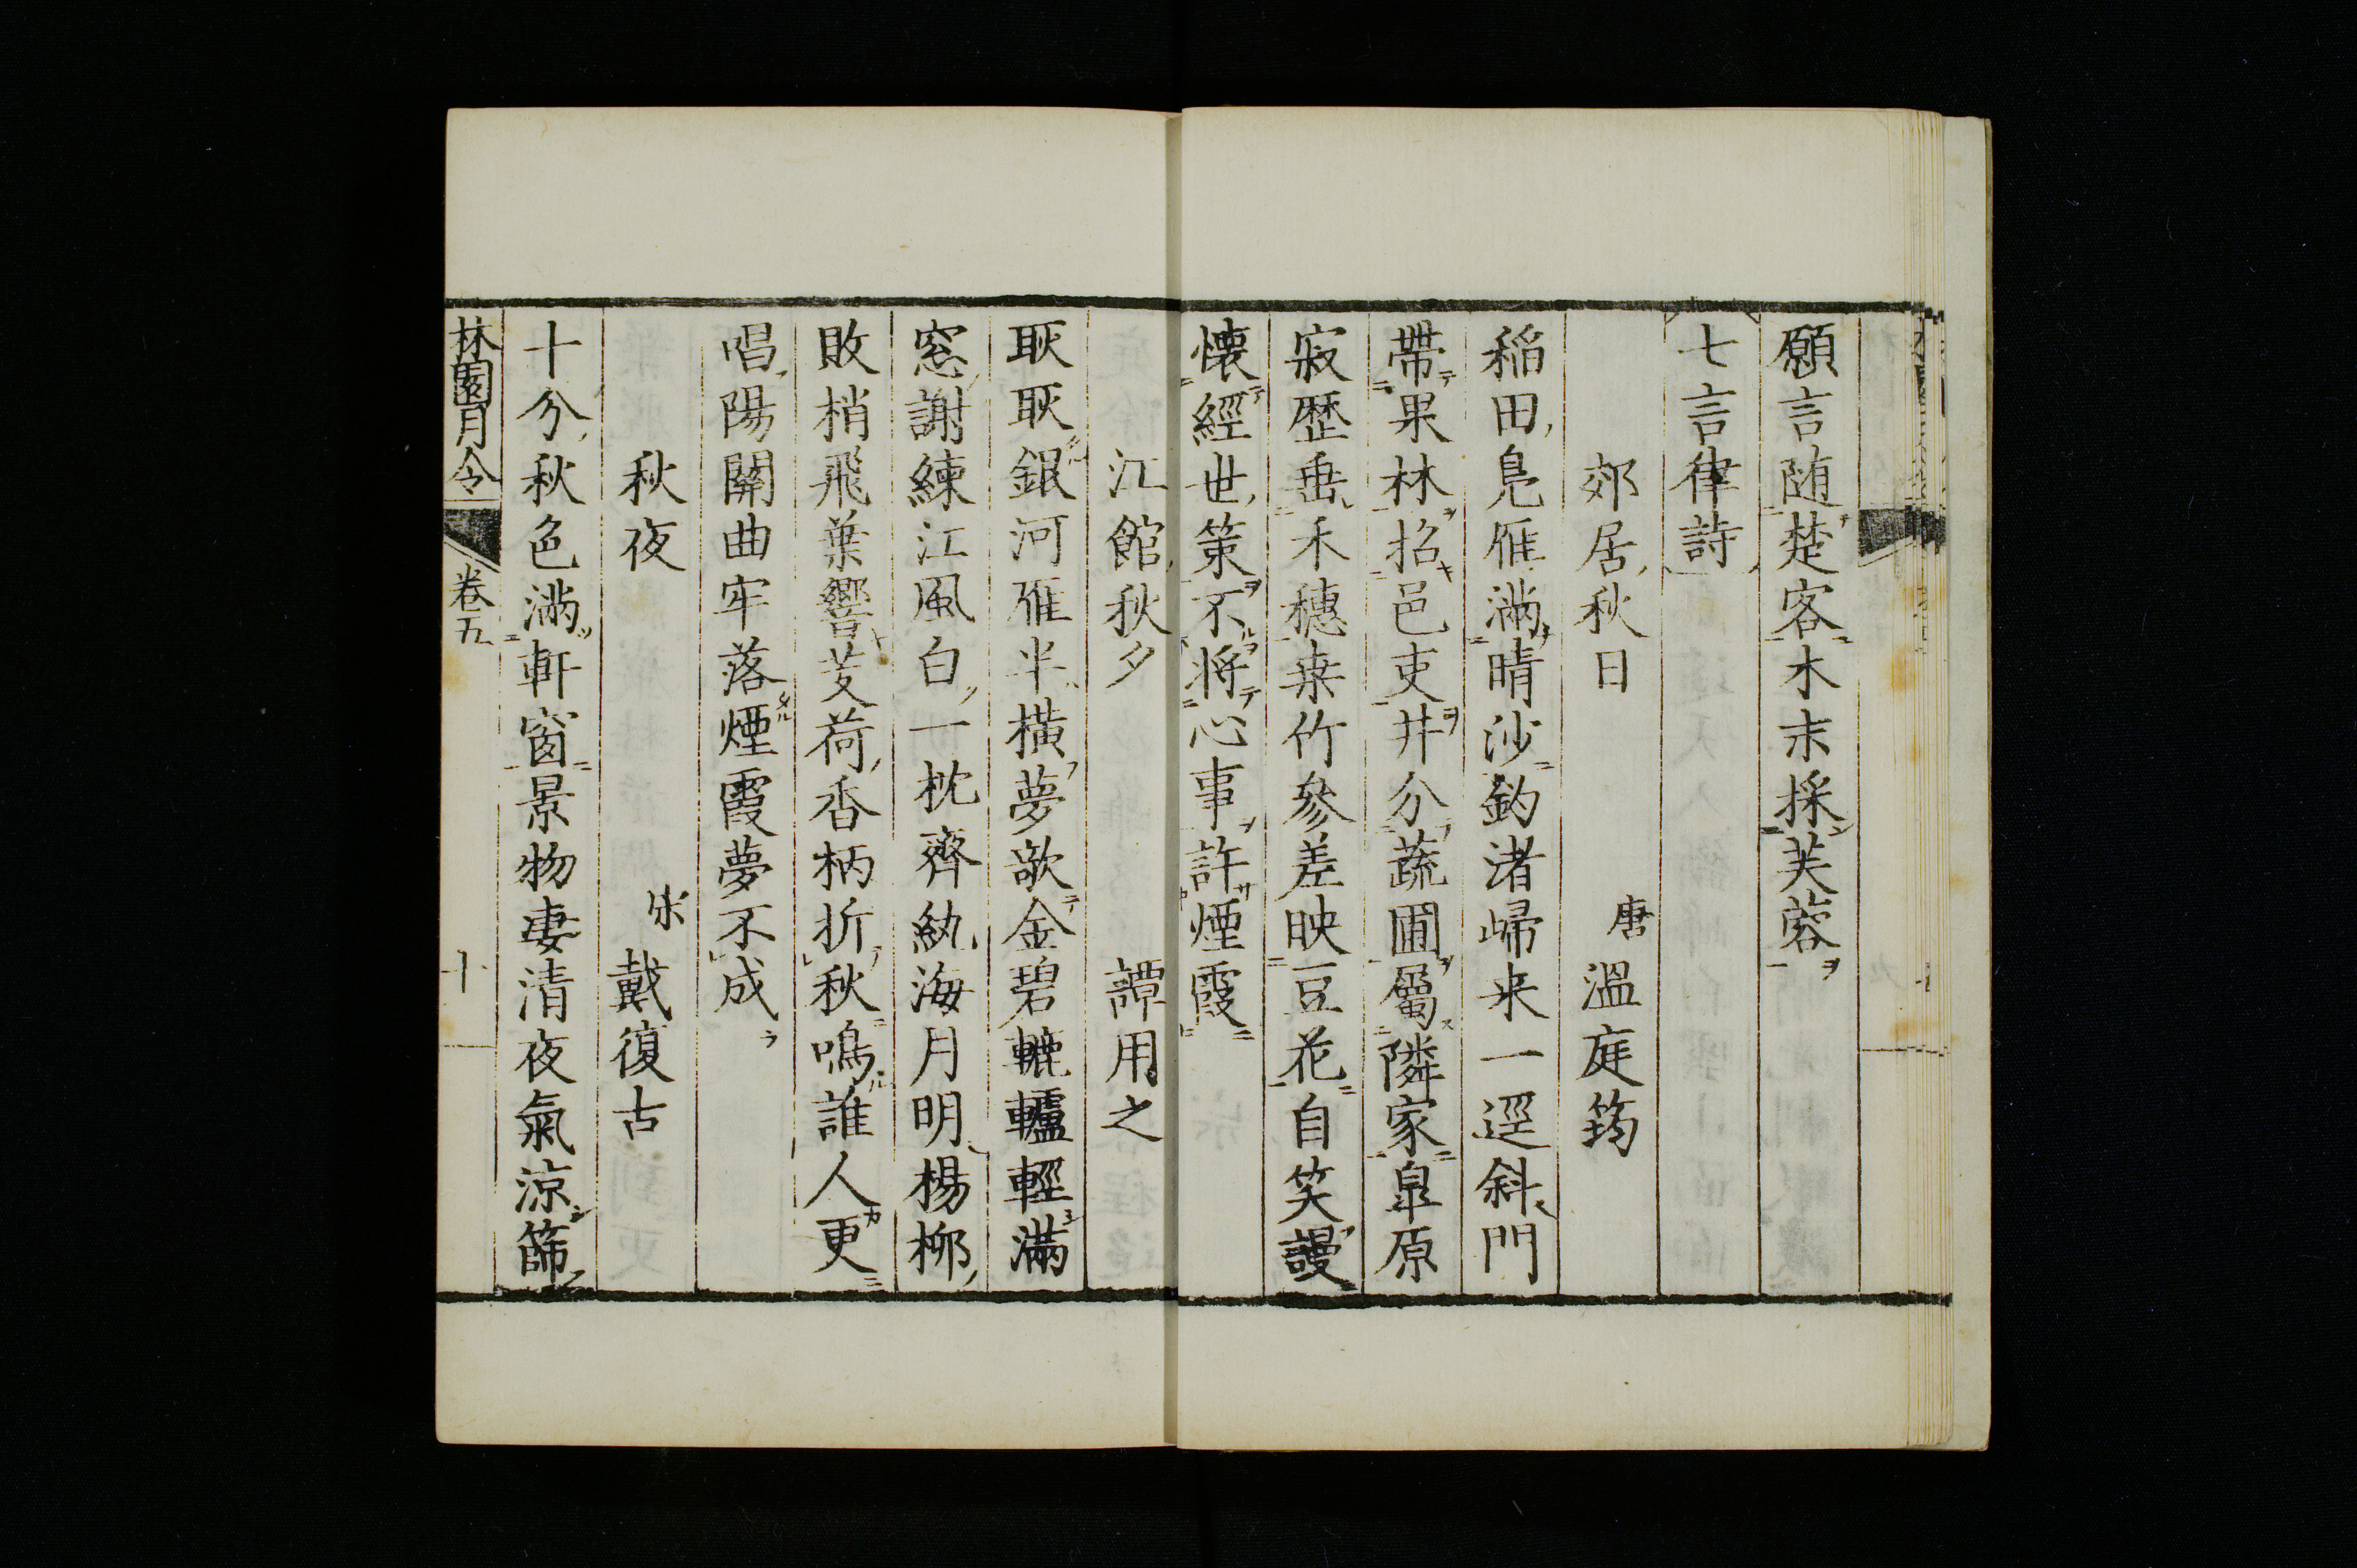 願言随楚客木末採芙蓉
七言律詩
郊居秋日 唐溫庭筠
稲田鳬雁満晴沙釣渚歸来一逕斜門
帶果林招邑吏井分蔬圃屬隣家皐原
寂歴垂禾穗桒竹參差映豆花自笑謾
懐經世策不将心事許煙霞
江館秋夕 譚用之
耿耿銀河雁半橫夢欹金碧轆轤輕滿
窓謝練江風白一枕齊紈海月明楊柳
敗梢飛葉響芰荷香柄折秋鳴誰人更
唱陽關曲牢落煙霞夢不成
秋夜 宋戴復古
十分秋色滿軒窗景物凄清夜氣涼篩
林園月令 卷五 十